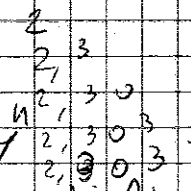 2
2, 3
2, 3 0
2, 3 0 3
2, 3 0 3